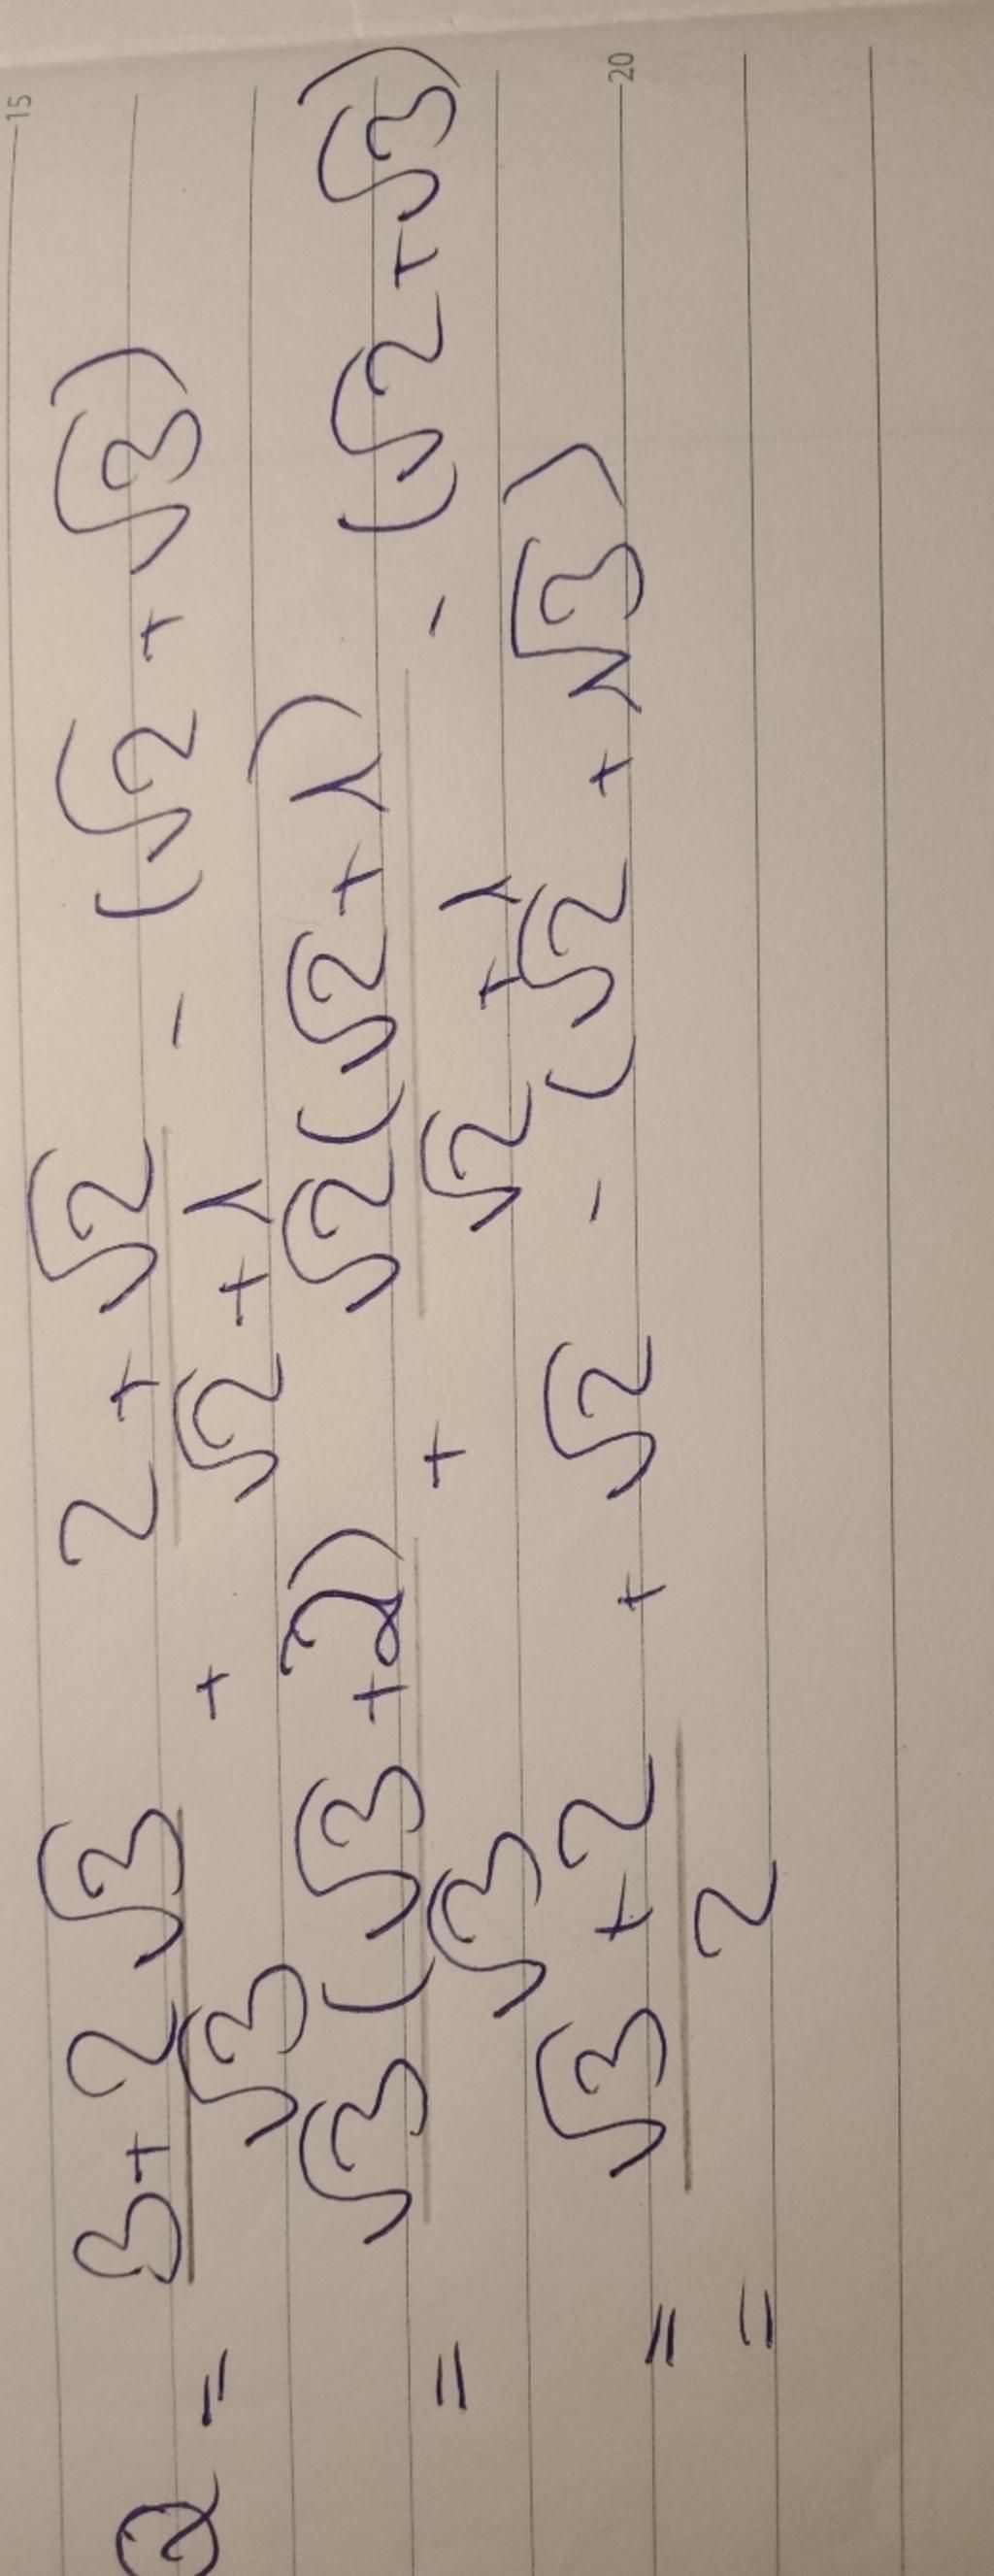 15
Q = (3+2√3)/√3 + (2+√2)/(√2+1) - (√2+√3)
= √3(√3+2)/√3 + √2(√2+1)/(√2+1) - (√2+√3)
= (√3+2)/2 + √2 - (√2+√3)
20
=